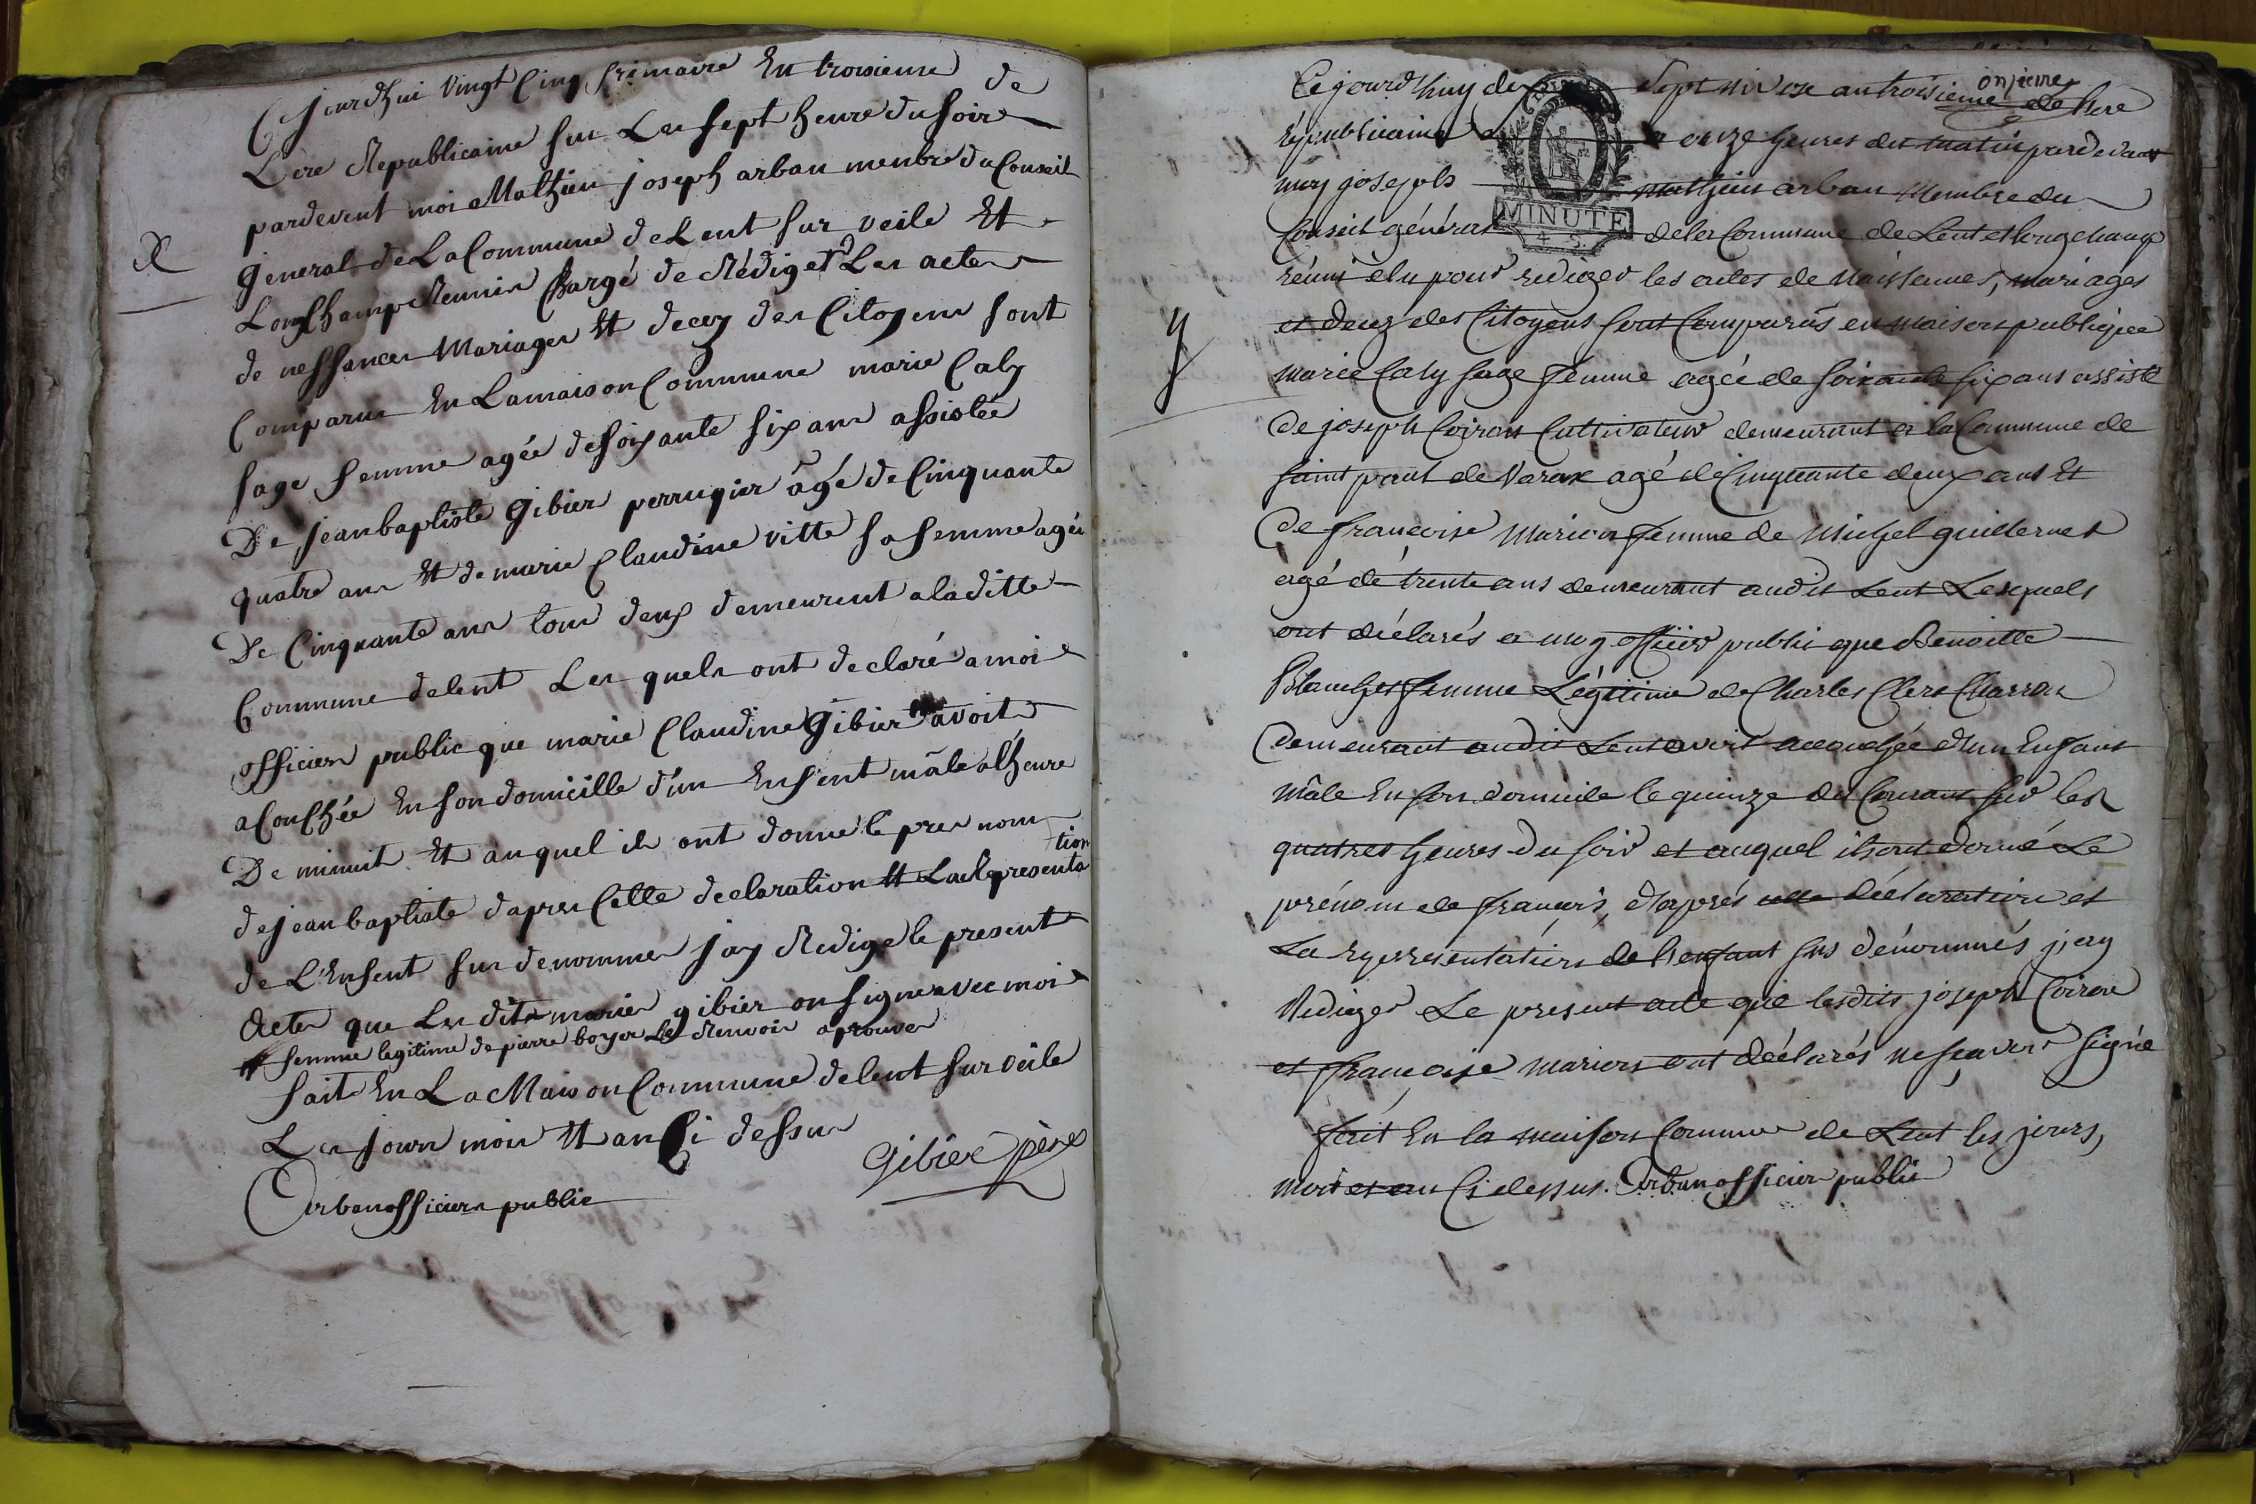 Cejourdhui vingt Cinq frimaire En troisieme de
Lere Republicaine sur Les sept heure du soir
pardevent moi Mathieu joseph arban menbre du Conseil
general de La Commune de Lent sur veile Et
Longchamp Reunis Chargé de Rédiger Les actes
de nessances Mariages Et decez des Citoyens sont
Comparus En Lamaison Commune marie Caly
sage femme agée de soixante six ans assistée
De jean baptiste gibier perruqier âgé de Cinquante
quatre ans Et de marie Claudine vitte sa femme agée
De Cinquante ans tous deux demeurent a laditte
Commune delent Les quels ont declaré a moi
officier public que marie Claudine gibier avoit
aCouChée En son domicille d'un Ensent mâle a lheure
De minuit Et auquel ils ont donne le pres nom
de jean baptiste dapres Cette declaration Et La Representa
tion
de L'Ensent sus denommer jay Redige le present
Acte que Les dits maries gibier on signe avec moi
femme legitime de pierre boyer Le Renvois aprouve
fait En La Maison Commune delent sur veile
Les jours mois Et an Ci dessus
Gibier père
Arban officier public
Cejourd'huy dix sept nivose an troisieme de l'ere
onzieme
républicaine a onze heures du matin pardevant
moy joseph mathieu arban Membre du
MINUTE
Conseil général de la Commune de Lent et longchamp
réuni élu pour rediger les actes de Naissances, mariages
et decez des Citoyens sont Comparus en maison publique
marie Caly sage femme agée de soixante six ans assisté
De joseph Coiron Cultivateur demeurant a la Commune de
saint paul de Varax agé de Cinquante deux ans Et
De françoise Marion femme de Michel guillermet
agé de trente ans demeurant audit Lent Lesquels
ont déclarés a moy officier public que Benoitte
Blanchet femme Légitime de Charles Clerc Charron
Demeurant audit Lent avoit accouchée d'un Enfant
mâle En son domicile le quinze du Courant sur les
quatres heures du soir et auquel ils ont donné Le
prénom de françois, d'après cette déclaration et
La représentation de l'enfant sus dénommés j'ay
Rediger Le present acte que lesdits joseph Coiron
et françoise marion ont déclarés ne sçavoir signé
fait En la maison Commune de Lent les jours,
mois et an Ci dessus. Arban officier public